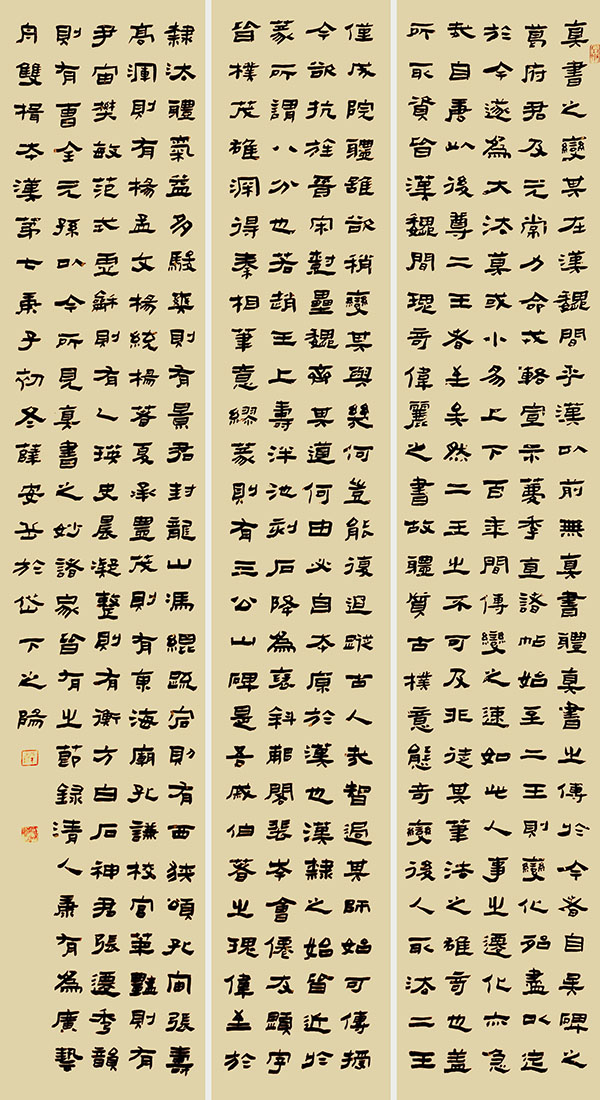 真書之變其在漢魏間乎漢以前無真書體真書之傳於今者自吳碑之
葛府君及元常力命戎輅宣示薦季直諸帖始至二王則變化殆盡以定
於今遂為大法莫或小易上下百年間傳變之速如此人事之遷化亦急
哉自唐以後尊二王者至矣然二王之不可及非徒其筆法之雄奇也蓋
所取資皆漢魏間瑰奇偉麗之書故體質古樸意態奇變後人取法二王
僅成院體雖欲稍變其與幾何豈能復追蹤古人哉智過其師始可傳授
今欲抗旌晉宋樹壘魏齊其道何由必自本原於漢也漢隸之始皆近於
篆所謂八分也若趙王上壽泮池刻石降為褒斜郙閣裴岑會僊友顯字
皆樸茂雄深得秦相筆意繆篆則有三公山碑是吾戚伯著之瑰偉至於
隸法體氣益多駿爽則有景君封龍山馮緄疏宕則有西狹頌孔宙張壽
高渾則有楊孟文楊統楊著夏承豐茂則有東海廟孔謙校官華豔則有
尹宙樊敏范式虛龢則有乙瑛史晨凝整則有衡方白石神君張遷秀韻
則有曹全元孫以今所見真書之妙諸家皆有之節錄清人康有為廣藝
舟雙楫本漢第七庚子初冬薛安岳於岱下之陽